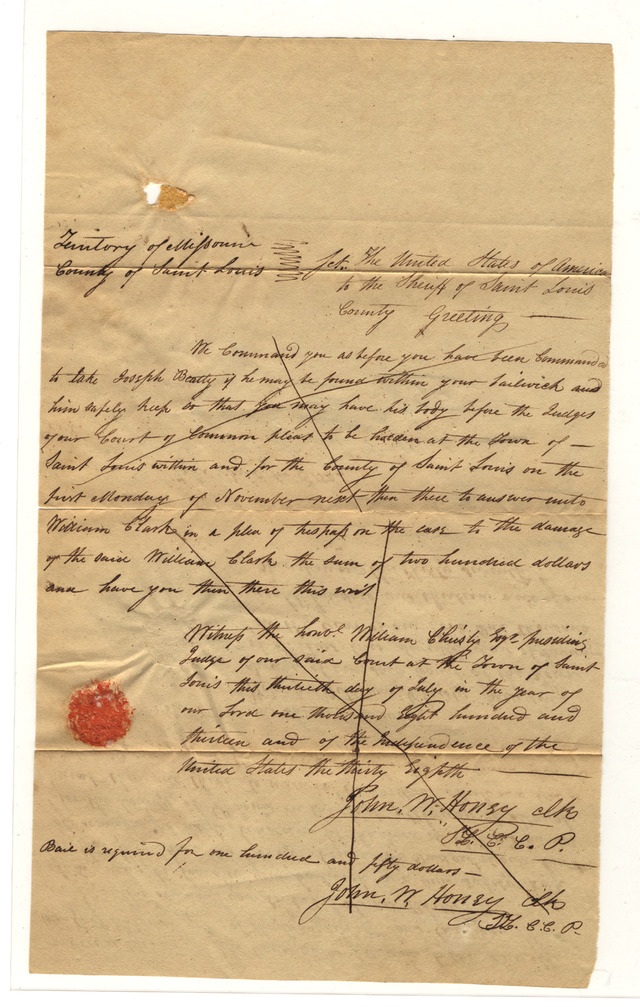 Territory of Missouri
County of Saint Louis
Sct. The United States of America
to the Sheriff of Saint Louis
County Greeting —
We Command you as before you have been Commanded
to take Joseph Beatty if he may be found within your bailiwick and
him safely keep so that you may have his body before the Judges
of our Court of Common pleas to be holden at the Town of —
Saint Louis within and for the County of Saint Louis on the
first Monday of November next then there to answer unto
William Clark in a plea of trespass on the case to the damage
of the said William Clark the sum of two hundred dollars
and have you then there this writ
Witness the honbl William Christy Esqr presiding
Judge of our said Court at the Town of Saint
Louis this thirtieth day of July in the year of
our Lord one thousand Eight hundred and
thirteen and of the Independence of the
United States the thirty Eighth —
John. W. Honey clk
St. L. C. C. P.
Bail is required for one hundred and fifty dollars —
John. W. Honey clk
St. L. C. C. P.